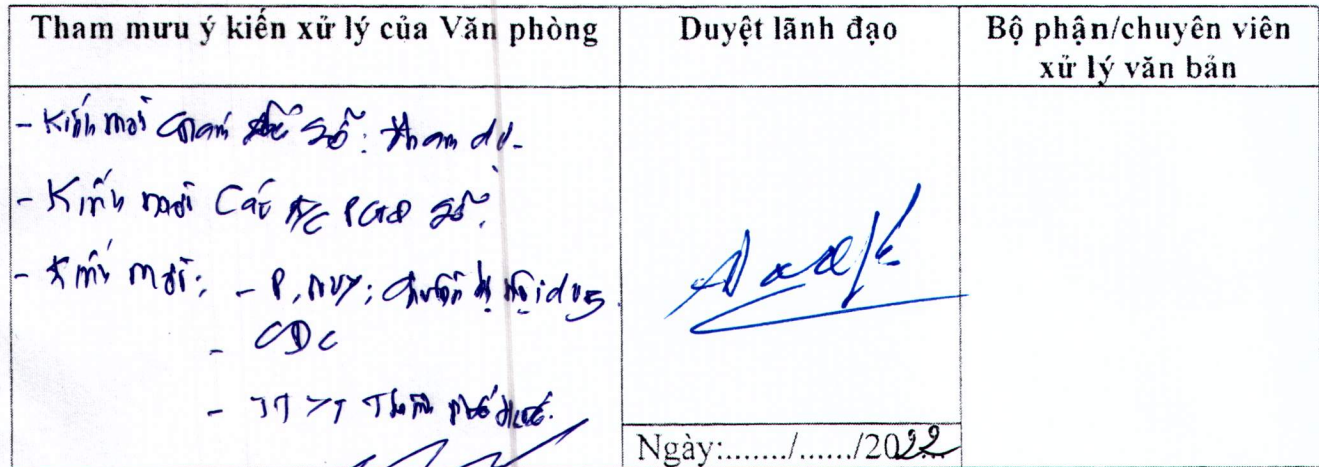 Tham mưu ý kiến xử lý của Văn phòng
Duyệt lãnh đạo
Bộ phận/chuyên viên
xử lý văn bản
- Kính mời Giám đốc Sở: tham dự.
- Kính mời Các Đ/c PGĐ Sở.
- Kính mời: - P. NVY: chuẩn bị nội dung.
- CDC
- TTYT Thành phố Huế.
Ngày:......./....../2022